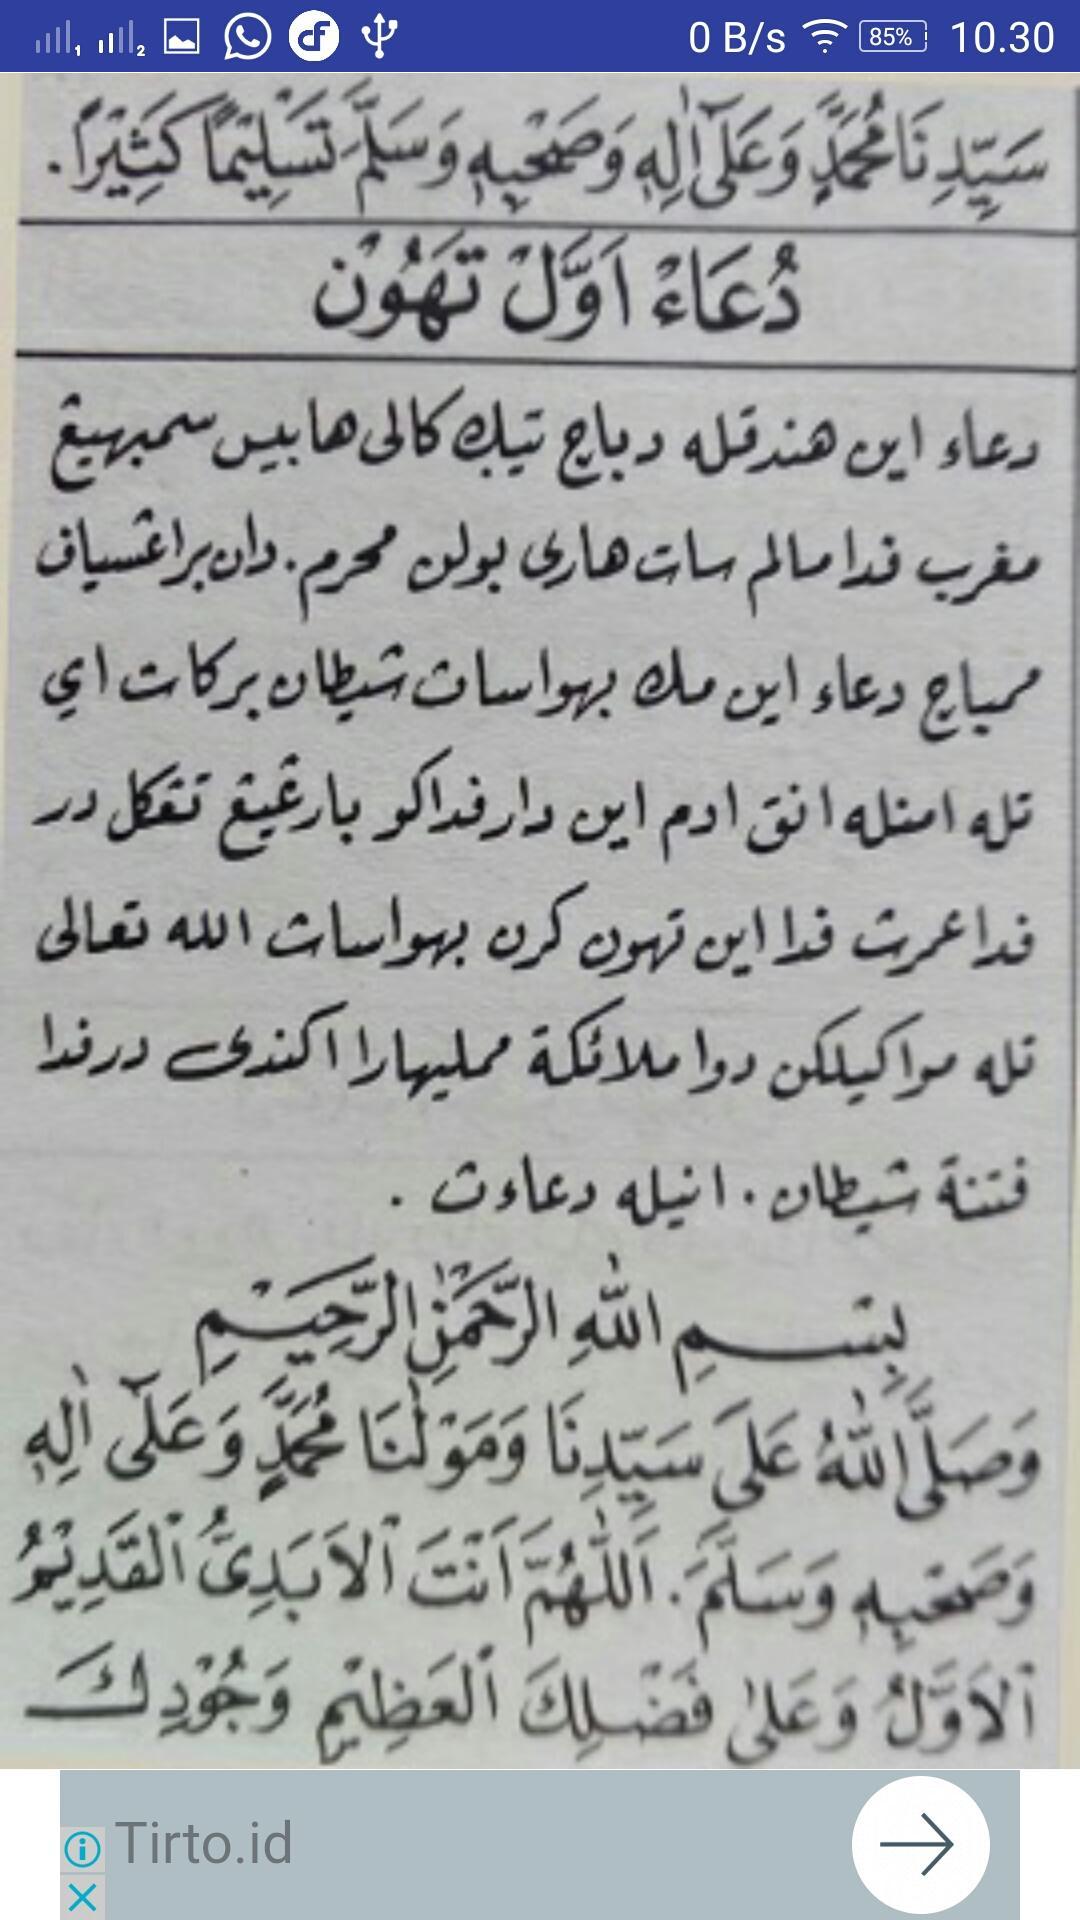 0 B/s 85% 10.30
سَيِّدِنَا مُحَمَّدٍ وَعَلٰٓى اٰلِهٖ وَصَحْبِهٖ وَسَلَّمَ تَسْلِيْمًا كَثِيْرًا.
دُعَاءْ اَوَّلْ تَهُوْن
دعاء اين هندقله دباچ تيݢ كالى هابيس سمبهيڠ
مغرب ڤدا مالم سات هارى بولن محرم. دان براڠسياڤ
ممباچ دعاء اين مك بهواسات شيطان بركات اي
تله امنله انق ادم اين دارڤداكو بارڠيڠ تڠكل در
ڤدا عمرث ڤدا اين تهون كرن بهواسات الله تعالى
تله مواكيلكن دوا ملائكة ممليهارا اكندى درڤدا
فتنة شيطان. انيله دعاءث.
بِسْمِ اللهِ الرَّحْمٰنِ الرَّحِيْمِ
وَصَلَّى اللهُ عَلَى سَيِّدِنَا وَمَوْلٰنَا مُحَمَّدٍ وَعَلٰٓى اٰلِهٖ
وَصَحْبِهٖ وَسَلَّمَ. اَللّٰهُمَّ اَنْتَ الْاَبَدِىُّ الْقَدِيْمُ
الْاَوَّلُ وَعَلٰى فَضْلِكَ الْعَظِيْمِ وَجُوْدِكَ
Tirto.id